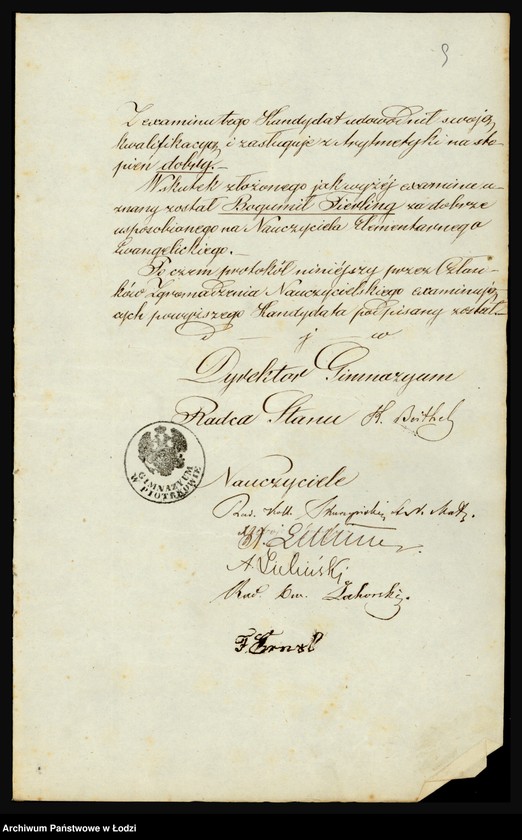 Z examinu tego Kandydat udowodnił swoją
kwalifikacyą i zasługuje z Arytmetyki na sto-
pień dobry.-
Wskutek złożonego jak wyżéj examinu u-
znany został Bogumił Sierling za dobrze
usposobionego na Nauczyciela Elementarnego
Ewangelickiego.-
Po czem protokół niniejszy przez Człon-
ków Zgromadzenia Nauczycielskiego examinują-
cych powyższego Kandydata podpisany został.-
Dyrektor Gimnazyum
Radca Stanu
GIMNAZYUM
W PIOTRKOWIE
Nauczyciele
Rad.
A Zieliński
Rad. Dw.
Archiwum Państwowe w Łodzi